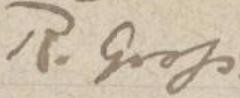 R. Gross